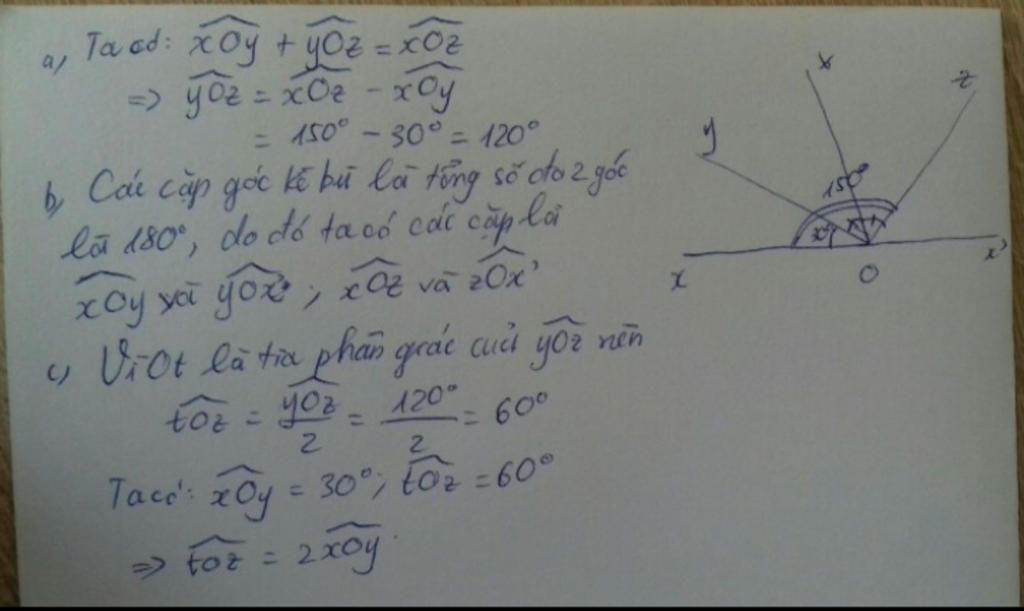 a, Ta có: xOy + yOz = xOz
=> yOz = xOz - xOy
= 150° - 30° = 120°
b, Các cặp góc kề bù là tổng số đo 2 góc
là 180°, do đó ta có các cặp là
xOy và yOx' ; xOz và zOx'
c, Vì Ot là tia phân giác của yOz nên
tOz = yOz/2 = 120°/2 = 60°
Ta có: xOy = 30°; tOz = 60°
=> tOz = 2xOy.
y
z
150°
x
O
x'